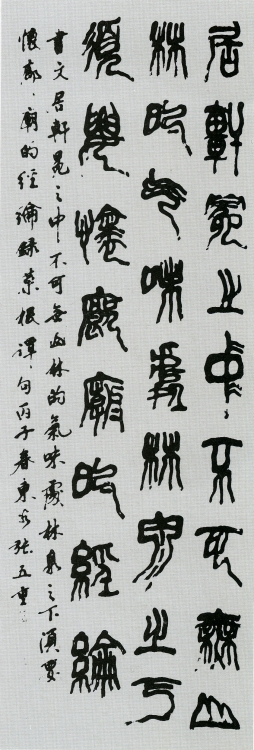 居軒冕之中不可無山
林的氣味處林泉之下
須要懷廊廟的經綸
書文居軒冕之中不可無山林的氣味處林泉之下須要
懷廊廟的經綸錄菜根譚句丙子春東張五